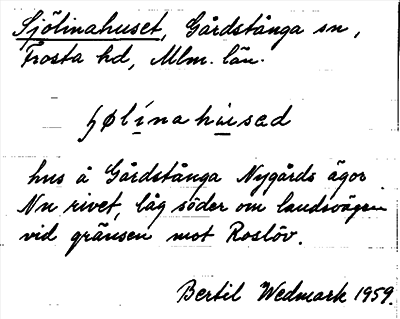 Sjölinahuset, Gårdstånga sn,
Frosta hd, Mlm. län.
ɧølína hùsəd
hus å Gårdstånga Nygårds ägor
Nu rivet, låg söder om landsvägen
vid gränsen mot Roslöv.
Bertil Wedmark 1959.